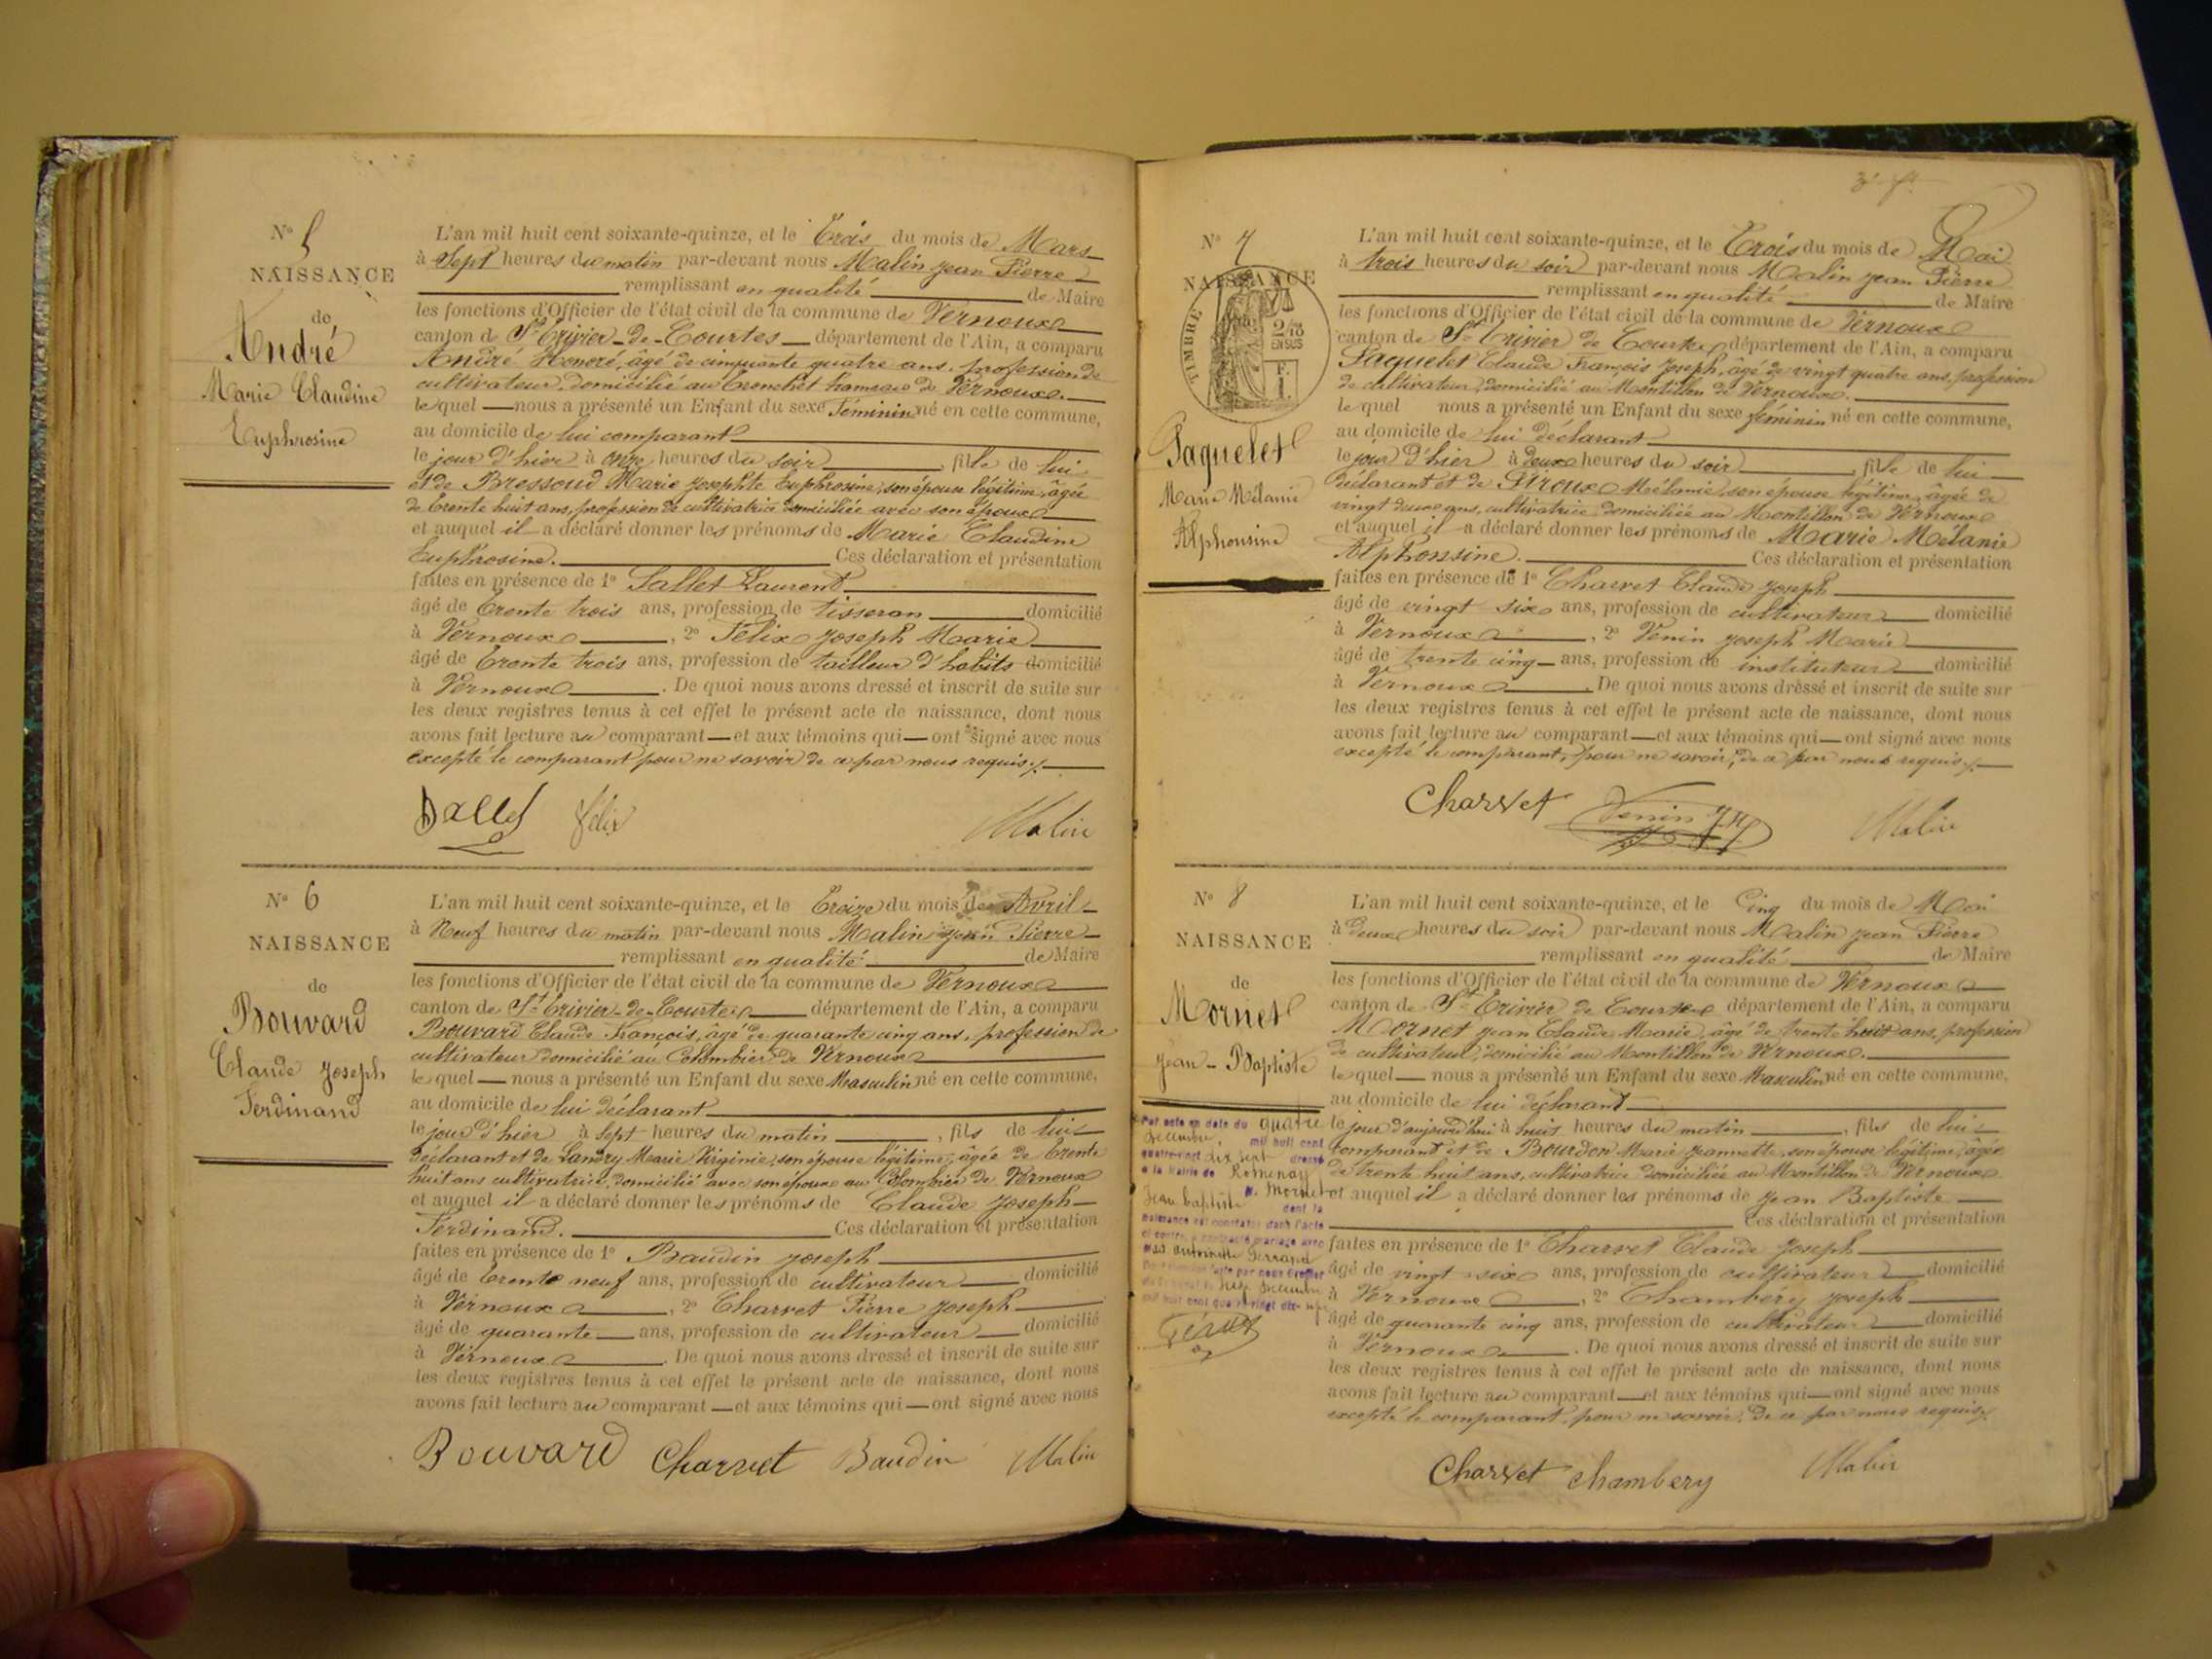 Nº 5
NAISSANCE
de
André
Marie Claudine
Euphrosine
L'an mil huit cent soixante-quinze, et le Trois du mois de Mars
à Sept heures du matin par-devant nous Malin Jean Pierre
remplissant en qualité de Maire
les fonctions d'Officier de l'état civil de la commune de Vernoux
canton de St Trivier-de-Courtes département de l'Ain, a comparu
André Honoré, âgé de cinquante quatre ans, profession de
cultivateur domicilié au hameau de Vernoux.
lequel nous a présenté un Enfant du sexe Féminin né en cette commune,
au domicile de lui comparant
le jour d'hier à onze heures du soir, fille de lui
et de Bressoud Marie Josephte Euphrosine, son épouse légitime, âgée
de trente huit ans, profession de cultivatrice domiciliée avec son époux
et auquel il a déclaré donner les prénoms de Marie Claudine
Euphrosine. Ces déclaration et présentation
faites en présence de 1º Sallet Laurent
âgé de trente trois ans, profession de tisseran domicilié
à Vernoux, 2º Félix Joseph Marie
âgé de trente trois ans, profession de tailleur d'habits domicilié
à Vernoux. De quoi nous avons dressé et inscrit de suite sur
les deux registres tenus à cet effet le présent acte de naissance, dont nous
avons fait lecture au comparant et aux témoins qui ont signé avec nous
excepté le comparant pour ne savoir de ce par nous requis
Félix Malin
Nº 6
NAISSANCE
de
Bouvard
Claude Joseph
Ferdinand
L'an mil huit cent soixante-quinze, et le Treize du mois de Avril
à Neuf heures du matin par-devant nous Malin Jean Pierre
remplissant en qualité de Maire
les fonctions d'Officier de l'état civil de la commune de Vernoux
canton de St Trivier-de-Courtes département de l'Ain, a comparu
Bouvard Claude François, âgé de quarante cinq ans, profession de
cultivateur domicilié au Colombier de Vernoux
lequel nous a présenté un Enfant du sexe Masculin né en cette commune,
au domicile de lui déclarant
le jour d'hier à Sept heures du matin, fils de lui
déclarant et de Landry Marie Virginie, son épouse légitime, âgée de trente
huit ans cultivatrice, domicilié avec son époux au Colombier de Vernoux
et auquel il a déclaré donner les prénoms de Claude Joseph
Ferdinand. Ces déclaration et présentation
faites en présence de 1º Baudin Joseph
âgé de trente neuf ans, profession de cultivateur domicilié
à Vernoux, 2º Charvet Pierre Joseph
âgé de quarante ans, profession de cultivateur domicilié
à Vernoux. De quoi nous avons dressé et inscrit de suite sur
les deux registres tenus à cet effet le présent acte de naissance, dont nous
avons fait lecture au comparant et aux témoins qui ont signé avec nous
Bouvard Charvet Baudin Malin
Nº 7
NAISSANCE
TIMBRE
2/10
EN SUS
F.
1.
Paquelet
Marie Mélanie
Alphonsine
L'an mil huit cent soixante-quinze, et le Trois du mois de Mai
à trois heures du soir par-devant nous Malin Jean Pierre
remplissant en qualité de Maire
les fonctions d'Officier de l'état civil de la commune de Vernoux
canton de St Trivier de Courtes département de l'Ain, a comparu
Paquelet Claude François Joseph, âgé de vingt quatre ans, profession
de cultivateur, domicilié au Montillon de Vernoux.
lequel nous a présenté un Enfant du sexe féminin né en cette commune,
au domicile de lui déclarant
le jour d'hier à deux heures du soir, fille de lui
déclarant et de Mélanie, son épouse légitime, âgée de
vingt deux ans, cultivatrice domiciliée au Montillon de Vernoux
et auquel il a déclaré donner les prénoms de Marie Mélanie
Alphonsine. Ces déclaration et présentation
faites en présence de 1º Charvet Claude Joseph
âgé de vingt six ans, profession de cultivateur domicilié
à Vernoux, 2º Venin Joseph Marie
âgé de trente cinq ans, profession de instituteur domicilié
à Vernoux. De quoi nous avons dressé et inscrit de suite sur
les deux registres tenus à cet effet le présent acte de naissance, dont nous
avons fait lecture au comparant et aux témoins qui ont signé avec nous
excepté le comparant, pour ne savoir, de ce par nous requis
Charvet Venin J.M. Malin
Nº 8
NAISSANCE
de
Mornet
Jean-Baptiste
Par acte en date du quatre
décembre, mil huit cent
quatre-vingt dix sept dressé
à la Mairie de Romenay
M. Mornet
Jean baptiste dont la
naissance est constatée dans l'acte
ci-contre a contracté mariage avec
antoinette
L'an mil huit cent soixante-quinze, et le Cinq du mois de Mai
à Deux heures du soir par-devant nous Malin Jean Pierre
remplissant en qualité de Maire
les fonctions d'Officier de l'état civil de la commune de Vernoux
canton de St Trivier de Courtes département de l'Ain, a comparu
Mornet Jean Claude Marie, âgé de trente huit ans, profession
de cultivateur, domicilié au Montillon de Vernoux.
lequel nous a présenté un Enfant du sexe Masculin né en cette commune,
au domicile de lui déclarant
le jour d'aujourd'hui à huit heures du matin, fils de lui
comparant et de Bourdon Marie Jeannette, son épouse légitime, âgée
de trente huit ans, cultivatrice domiciliée au Montillon de Vernoux
et auquel il a déclaré donner les prénoms de Jean Baptiste
Ces déclaration et présentation
faites en présence de 1º Charvet Claude Joseph
âgé de vingt six ans, profession de cultivateur domicilié
à Vernoux, 2º Chambéry Joseph
âgé de quarante cinq ans, profession de cultivateur domicilié
à Vernoux. De quoi nous avons dressé et inscrit de suite sur
les deux registres tenus à cet effet le présent acte de naissance, dont nous
avons fait lecture au comparant et aux témoins qui ont signé avec nous
excepté le comparant, pour ne savoir, de ce par nous requis
Charvet Chambery Malin